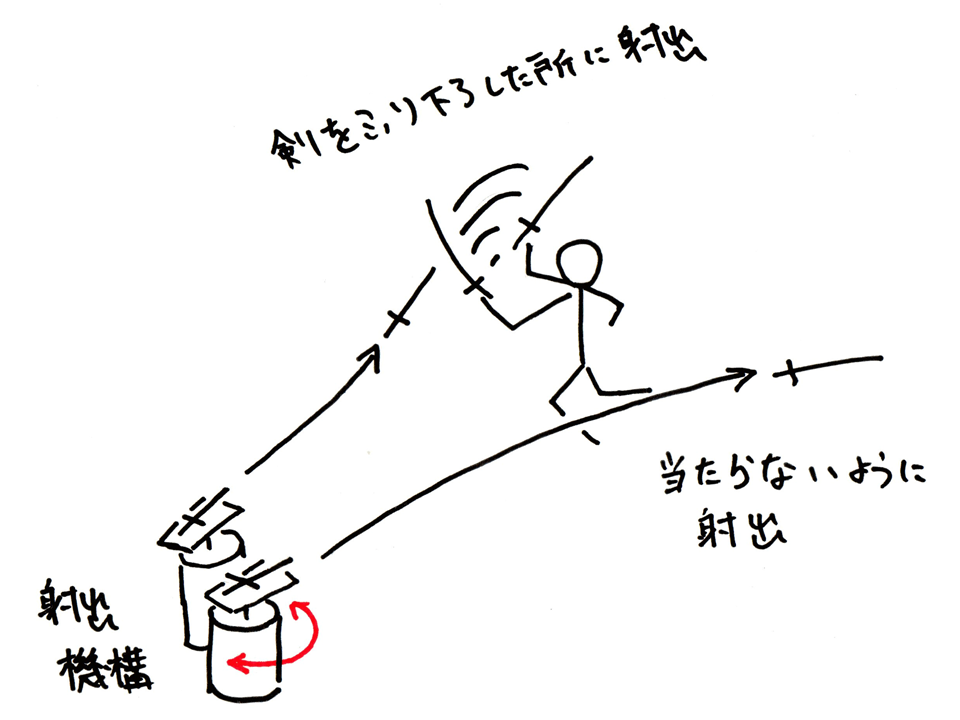 剣をふり下ろした所に射出
当たらないように
射出
射出
機構